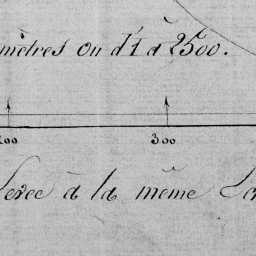 mètres ou d'1 à 2500.
200 300
levée à la même